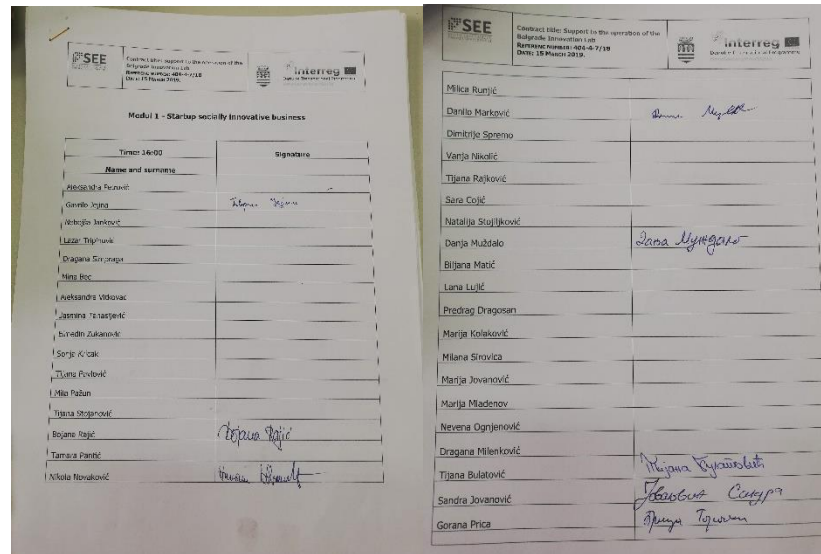 SEE
Contract title: Support to the operation of the
Belgrade Innovation Lab
Reference number: 404-4-7/18
Date: 15 March 2019.
Interreg
Modul 1 - Startup socially innovative business
Time: 16:00
Signature
Name and surname
Aleksandra Petrović
Gavrilo Jejina
Nebojša Janković
Lazar
Dragana
Mina Boc
Aleksandra Vitkovac
Jasmina
Zukanović
Sonja Kricak
Tijana Pavlović
Mila Pažun
Tijana Stojanović
Bojana Rajić Bojana Rajić
Tamara Pantić
Nikola Novaković
SEE
Contract title: Support to the operation of the
Belgrade Innovation Lab
Reference number: 404-4-7/18
Date: 15 March 2019.
Interreg
Milica Runjić
Danilo Marković
Dimitrije Spremo
Vanja Nikolić
Tijana Rajković
Sara Cojić
Natalija Stojiljković
Danja Muždalo Дања Муждало
Biljana Matić
Lana Lujić
Predrag Dragosan
Marija Kolaković
Milana Sirovica
Marija Jovanović
Marija Mladenov
Nevena Ognjenović
Dragana Milenković
Tijana Bulatović Тијана Булатовић
Sandra Jovanović Јовановић Сандра
Gorana Prica Прица Горана